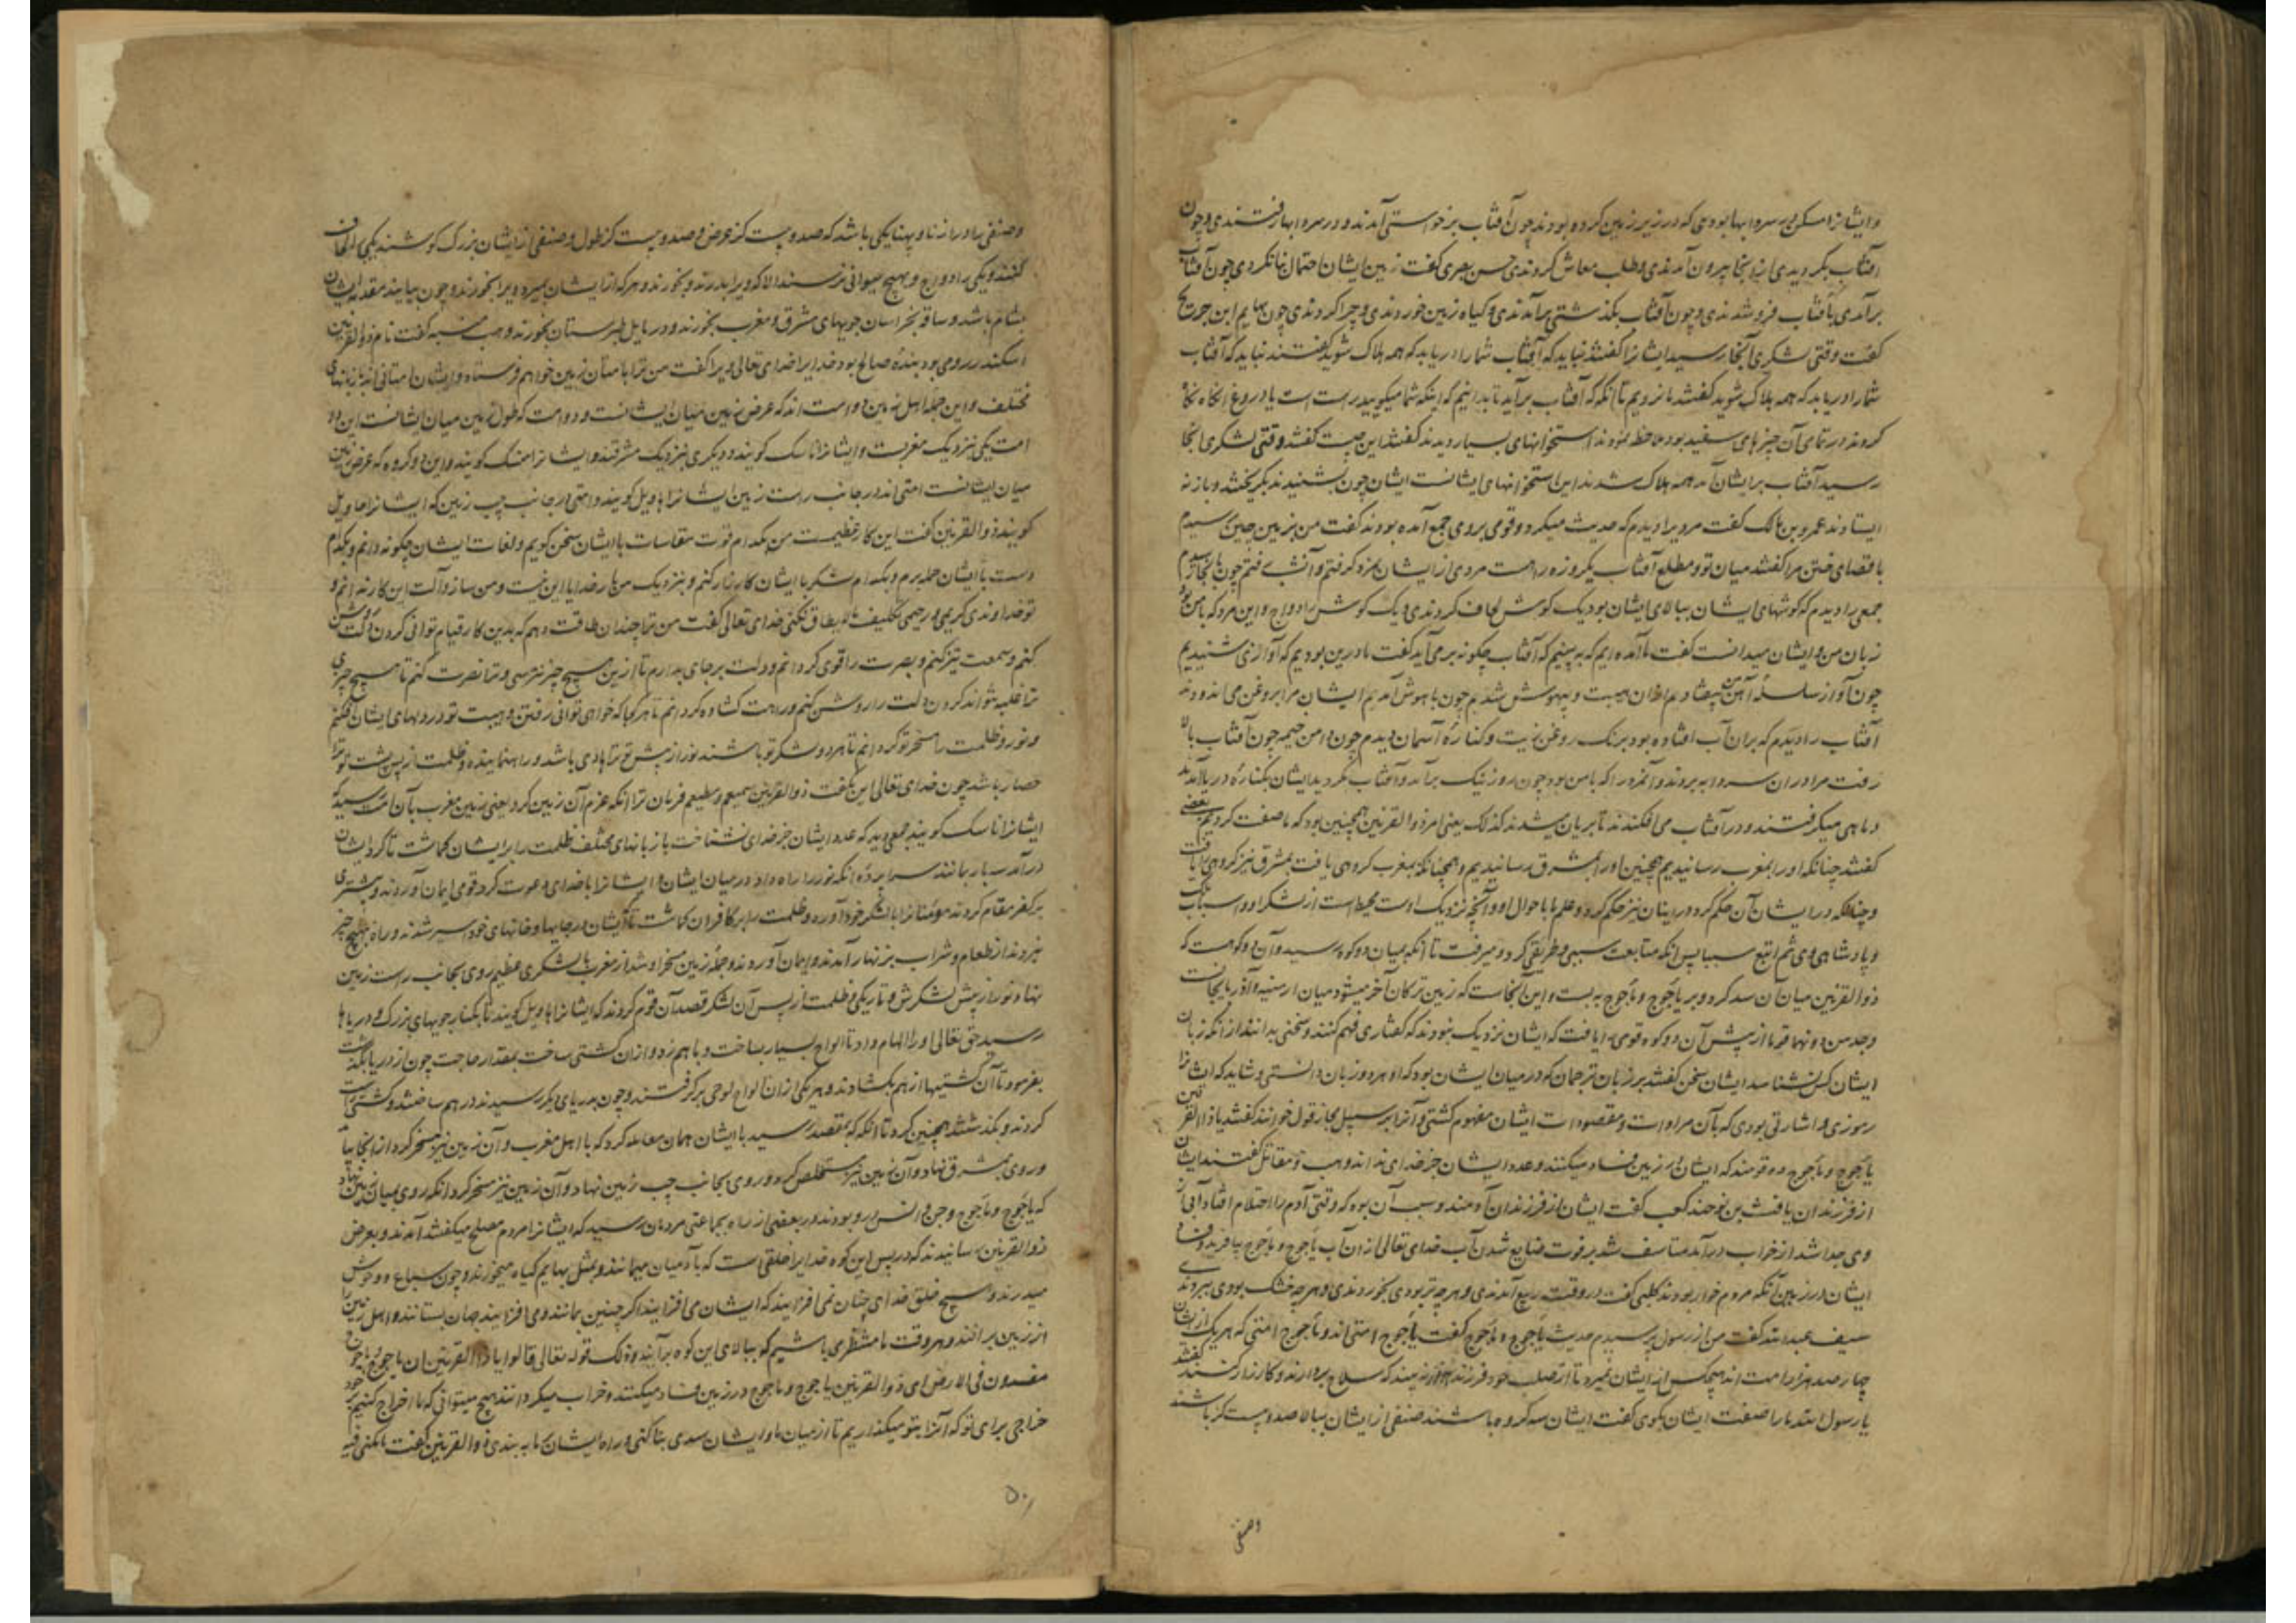 و ایشانرا مسکن در سردابها بودی که در زیر زمین کرده بودند چون آفتاب برخواستی آمدند و در سردابها رفتندی و چون
آفتاب بگردیدی از آنجا بیرون آمدندی و طلب معاش کردندی حسن بصری گفت زمین ایشان احتمال بنا نکردی چون آفتاب
برآمدی بآفتاب فروشدندی و چون آفتاب بگذشتی برآمدندی و گیاه زمین خوردندی و چرا کردندی چون بهایم ابن جریح
گفت وقتی لشکری آنجا رسید ایشانرا گفتند نباید که آفتاب شما را دریابد که همه هلاک شوید گفتند نباید که آفتاب
شما را دریابد که همه هلاک شوید گفتند ما نرویم تا آنکه آفتاب برآید تا بدانیم که اینکه شما میگویید راست است یا دروغ آنگاه نگاه
کردند در تمامی آن چیزهای سفید بود ملاحظه نمودند استخوانهای بسیار دیدند گفتند این چیست گفتند وقتی لشکری اینجا
رسید آفتاب برایشان آمد همه هلاک شدند این استخوانهای ایشانست ایشان چون بشنیدند بگریختند و باز نه
ایستادند عمرو بن مالک گفت مردیرا دیدم که حدیث میکرد و قومی بروی جمع آمده بودند گفت من بزمین چین رسیدم
باقصای ختن مرا گفتند میان تو و مطلع آفتاب یکروزه راهست مردی از ایشان بمزد گرفتم و آنشب رفتم چون بآنجا رسیدم
جمعی را دیدم که گوشهای ایشان ببالای ایشان بود یک گوش لحاف کردندی و یک گوش را دواج و این مرد که با من بود
زبان من و ایشان میدانست گفت ما آمده ایم که به بینیم که آفتاب چگونه برمی آید گفت ما درین بودیم که آوازی شنیدیم
چون آواز سلسلهٔ آهن من بیفتادم از آن هیبت و بیهوش شدم چون باهوش آمدم ایشان مرا بروغن می اندودند
آفتاب را دیدم که بران آب افتاده بود برنک روغن زیت و کنارهٔ آسمان دیدم چون دامن خیمه چون آفتاب بالا
رفت مرا در ان سردابه بردند و آنمرد را که با من بود چون روز نیک برآمد و آفتاب بگردید ایشان بکنارهٔ دریا آمدند
و ماهی میگرفتند و در آفتاب می افکندند تا بریان میشدند کذلک یعنی امر ذوالقرنین همچنین بود که ما صفت کردیم بعضی
گفتند چنانکه او را بمغرب رسانیدیم همچنین او را بمشرق رسانیدیم و همچنانکه بمغرب گروهی یافت بمشرق نیز گروهی را یافت
و چنانکه در ایشان آن حکم کرد در اینان نیز حکم کرد و علم ما باحوال او و آنچه نزدیک اوست محیط است از لشکر او و اسباب
و پادشاهی وی ثم اتبع سببا پس آنکه متابعت سببی و طریقی کرد و میرفت تا آنکه بمیان دو کوه رسید و آن دو کوهست که
ذوالقرنین میان آن سد کرد و بر یاجوج و ماجوج به بست و این آنجاست که زمین ترکان آخر میشود میان ارمنیه و آذربایجانست
وجد من دونهما قوما از پیش آن دو کوه قومی را یافت که ایشان نزدیک نبودند که گفتاری فهم کنند و سخنی بدانند از آنکه زبان
ایشان کس نشناسد ایشان سخن گفتند بر زبان ترجمان که در میان ایشان بود که او هر دو زبان دانستی و شاید که ایشانرا
رموزی و اشارتی بودی که بآن مراد است و مقصود است ایشان مفهوم گشتی و آنرا بر سبیل مجاز قول خوانند گفتند یا ذاالقرنین
یاجوج و ماجوج ده قومند که ایشان در زمین فساد میکنند و عدد ایشان جز خدای نداند وهب و مقاتل گفتند ایشان
از فرزندان یافث بن نوحند کعب گفت ایشان از فرزندان آدمند و سبب آن بود که وقتی آدم را احتلام افتاد آبی از
وی جدا شد از خواب درآمد متاسف شد بر فوت ضایع شدن آب خدای تعالی از ان آب یاجوج و ماجوج بیافرید و فساد
ایشان در زمین آنکه مردم خوار بودند کلبی گفت در وقت ربیع آمدندی و هرچه تر بودی بخوردندی و هرچه خشک بودی ببردندی
سیف عبدالله گفت من از رسول پرسیدم حدیث یاجوج و ماجوج گفت یاجوج امتی اند و ماجوج امتی که هریک از ایشان
چهارصد هزار امت اند هیچکس از ایشان نمیرد تا از صلب خود فرزند هزار نه بیند که سلاح بردارند و کارزار کنند گفتند
یا رسول الله ما را صفت ایشان بگوی گفت ایشان سه گروه باشند صنفی از ایشان ببالا صد و بیست گز باشند
وصنفی
وصنفی را درازنا و پهنا یکی باشد که صد و بیست گز عرض و صد و بیست گز طول و صنفی از ایشان بزرک گوشند یکی لحاف
کنند و یکی را دواج و بهیچ حیوانی نرسند الا که ویرا بدرند و بخورند و هرکه از ایشان بمیرد ویرا بخورند و چون بیایند مقدمه ایشان
بشام باشد و ساقه بخراسان جویهای مشرق و مغرب بخورند و دریای طبرستان بخورند وهب منبه گفت نام ذوالقرنین
اسکندر رومی بود بندهٔ صالح بود خدایرا خدای تعالی ویرا گفت من ترا بامتان زمین خواهم فرستاد و ایشان امتانی اند با زبانهای
مختلف و این جمله اهل زمین دو امت اند که عرض زمین میان ایشانست و دو امت که طول زمین میان ایشانست این دو
امت یکی نزدیک مغربست و ایشانرا ناسک گویند و دیگری نزدیک مشرقند و ایشانرا منسک گویند و این دو گروه که عرض زمین
میان ایشانست امتی اند در جانب راست زمین ایشانرا هاویل گویند و امتی در جانب چپ زمین که ایشانرا تاویل
گویند ذوالقرنین گفت این کار عظیمست من بکدام قوت مقاسات با ایشان سخن گویم و لغات ایشان چگونه دانم و بکدام
دست با ایشان حمله برم و بکدام لشکر با ایشان کارزار کنم و بنزدیک من بار خدایا این نیست و من ساز و آلت این کار ندارم و
تو خداوندی کریمی و رحیمی تکلیف ما لایطاق نکنی خدای تعالی گفت من ترا چندان طاقت دهم که بدین کار قیام توانی کردن دلت روشن
کنم و سمعت تیز کنم و بصرت را قوی گردانم و دلت برجای بدارم تا از ین هیچ چیز نترسی و ترا نصرت کنم تا هیچ چیزی
ترا غلبه نتواند کردن دلت را روشن کنم و راهت گشاده گردانم تا هر کجا که خواهی توانی رفتن و هیبت تو در دلهای ایشان افکنم
و نور و ظلمت را مسخر تو گردانم تا هر دو لشکر تو باشند نور از پیش تو ترا هادی باشد و راه نماینده و ظلمت از پس پشت تو ترا
حصار باشد چون خدای تعالی این بگفت ذوالقرنین سمیعم و مطیعم فرمان ترا آنکه عزم آن زمین کرد یعنی زمین مغرب بآن امت رسید که
ایشانرا ناسک گویند جمعی دید که عدد ایشان جز خدای نشناخت با زبانهای مختلف ظلمت را برایشان گماشت تا گرد ایشان
درآمد سه بار بمانند سراپردهٔ آنکه نور را راه داد در میان ایشان و ایشانرا باخدای دعوت کرد قومی ایمان آوردند و بیشتری
بر کفر مقام کردند مومنانرا با لشکر خود آورد و ظلمت را بر کافران گماشت تا ایشان در جایها و خانهای خود اسیر شدند و راه بهیچ چیز
نبردند از طعام و شراب بزنهار آمدند و ایمان آوردند و جملهٔ زمین مسخر او شد از مغرب با لشکری عظیم روی بجانب راست زمین
نهاد نور از پیش لشکرش و تاریکی و ظلمت از پس آن لشکر قصد آن قوم کردند که ایشانرا هاویل گویند تا بکنار جویهای بزرک و دریاها
رسید حق تعالی او را الهام داد تا الواح بسیار بساخت و باهم زد و ازان کشتی ساخت بمقدار حاجت چون از دریا بگذشت
بفرمود تا آن کشتیها از هم بگشادند و هریکی ازان الواح لوحی برگرفتند و چون بدریای دیگر رسیدند درهم ساختند و کشتی راست
کردند و بگذشتند همچنین کرد تا آنکه که بمقصد رسید با ایشان همان معامله کرد که با اهل مغرب و آن زمین نیز مسخر کرد از آنجا بیامد
و روی بمشرق نهاد و آن زمین نیز مستخلص کرد و روی بجانب چپ زمین نهاد و آن زمین نیز مسخر کرد آنکه روی بمیان زمین نهاد
که یاجوج و ماجوج و جن و انس درو بودند در بعضی از راه بجماعتی مردمان رسید که ایشانرا مردم مصلح میگفتند آمدند و بعرض
ذوالقرنین رسانیدند که در پس این کوه خدایرا خلقی است که بآدمیان میمانند و بمثل بهایم گیاه میخورند و چون سباع و وحوش
میدرند و هیچ خلق خدای چنان نمی افزایند که ایشان می افزایند اگر چنین بمانند و می افزایند جهان بستانند و اهل زمین را
از زمین برانند و هر وقت ما منتظر می باشیم که ببالای این کوه برآیند و ذلک قوله تعالی قالوا یا ذاالقرنین ان یاجوج و ماجوج
مفسدون فی الارض ای ذوالقرنین یاجوج و ماجوج در زمین فساد میکنند و خراب میگردانند هیچ میتوانی که ما اخراج کنیم خود
خراجی برای تو که آنرا بتو میگذاریم تا از میان ما و ایشان سدی بنا کنی و راه ایشان بما به بندی ذوالقرنین گفت ما مکنی فیه